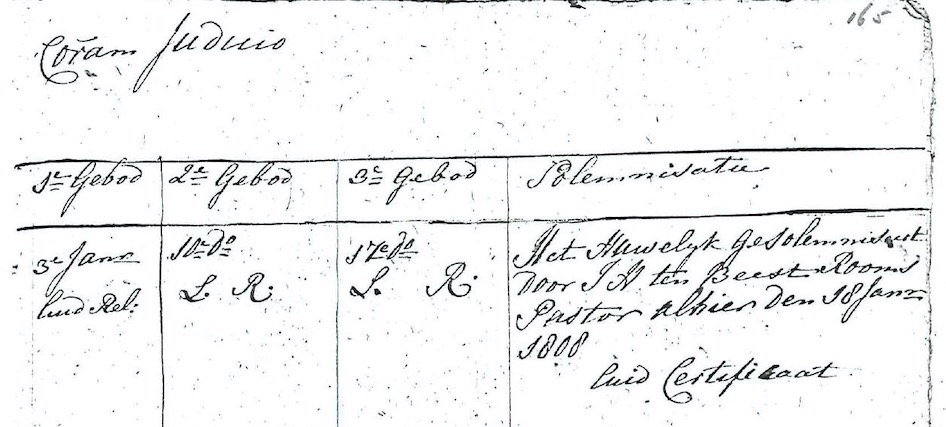 165
Coram Judicio
1e Gebod 2e Gebod 3e Gebod Solemnisatie
3e Janr 10e do 17e do Het Huwelyk Gesolemniseert
luid Rel: L. R: L. R: door J H ten Beest Rooms
Pastor alhier den 18 Janr
1808
luid Certificaat